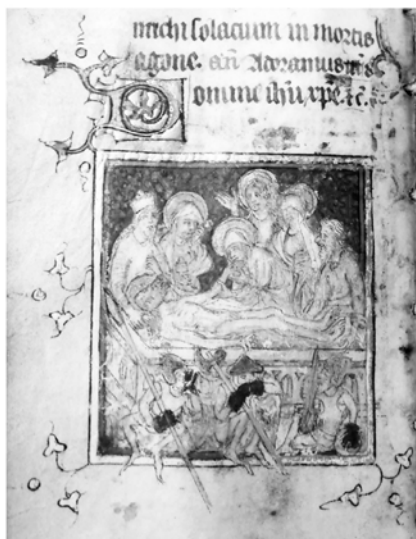 michi solacium in mortis
agone. Adoramus
Domine ihu xpe. ⁊c.